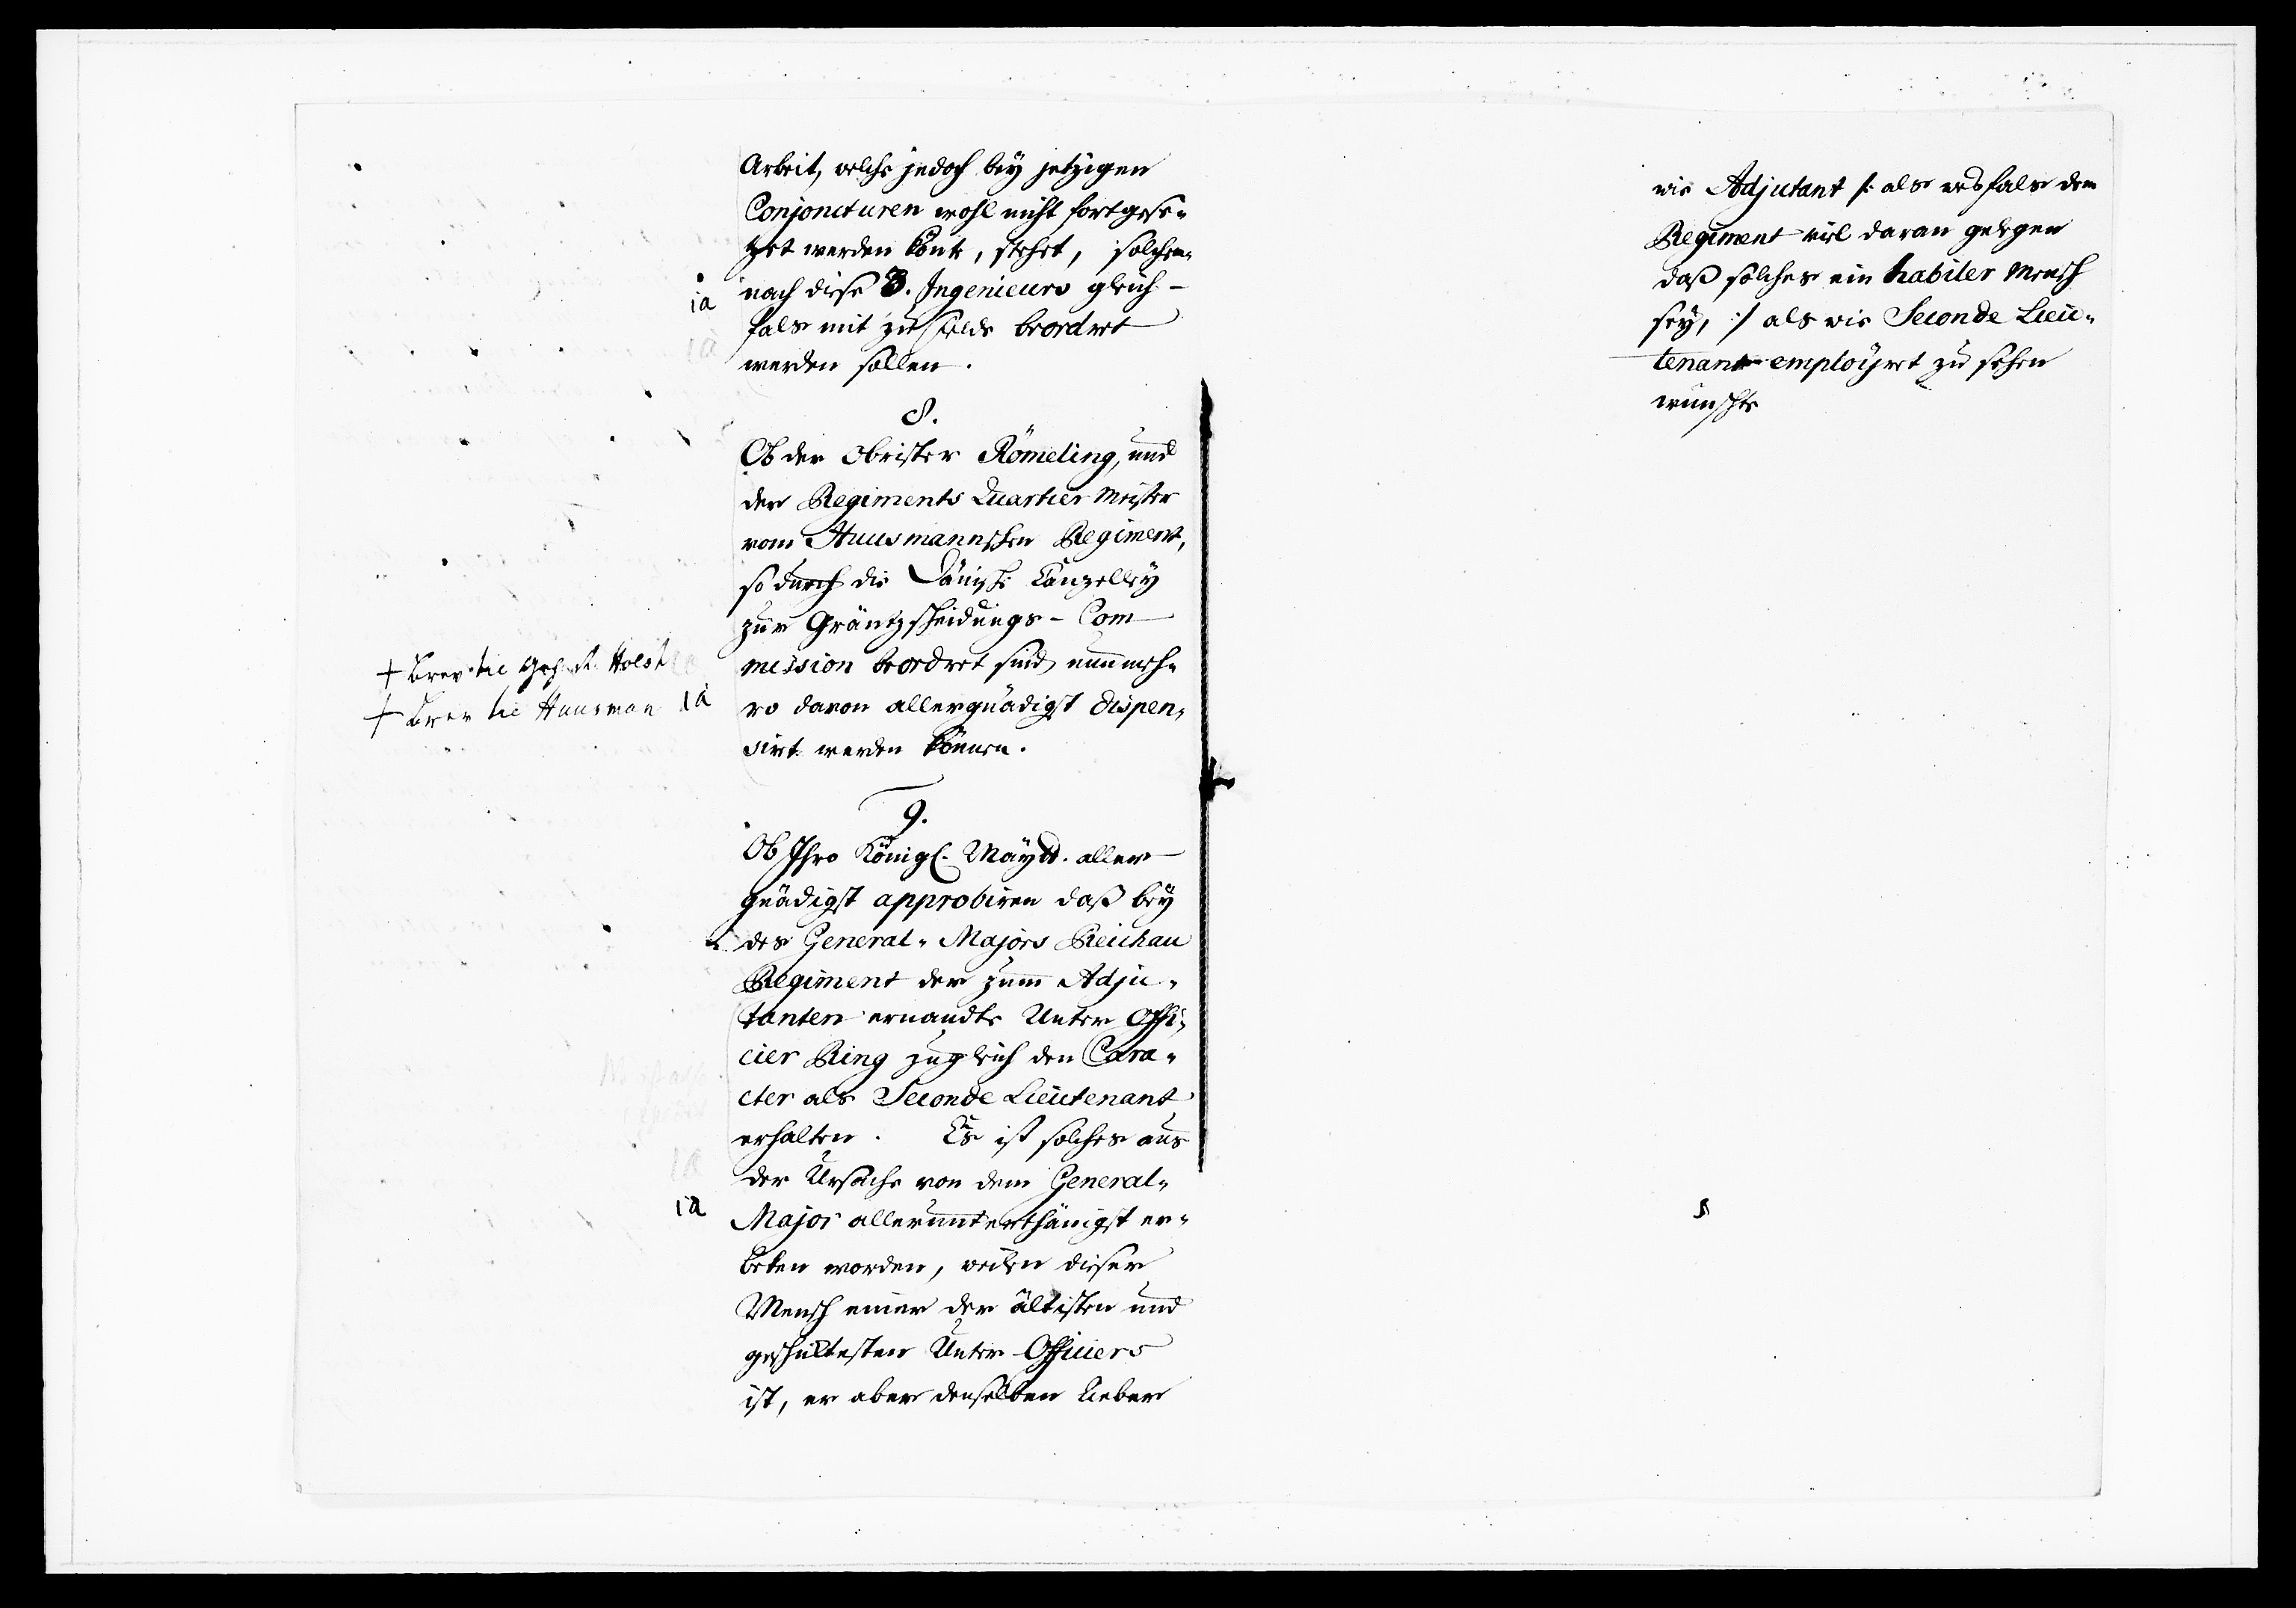 Arbeit, welche jedoch bey jetzigen
Conjoncturen wohl nicht fortgese-
tzet werden könte, stehet, solchem-
nach diese 3. Ingenieurs gleich-
ia
fals mit zu felde beordret
werden sollen.
8.
Ob der Obrister Römeling, und
der Regiments Quartier Meister
vom Huusmannschen Regiment,
so durch die Dänische Cantzelley
zur Gräntzscheidungs-Com
mission beordret sind, nunmeh-
ro davon allergnädigst dispen-
sirt werden können.
+ Brev til Geh. R. Holst
+ Brev til Huusman
ia
9.
Ob Ihro Königl. Maytt. aller
gnädigst approbiren daß bey
des General-Majors Reichau
Regiment der zum Adju-
tanten ernandte Unter Offi-
cier Ring zugleich den Cara-
cter als Seconde Lieutenant
erhalten. Es ist solches aus
der Ursache von dem General-
Major allerunterthänigst er-
ia
beten worden, weilen dieser
Mensch einer der ältisten und
geschicktesten Unter-Officiers
ist, er aber denselben lieber
wie Adjutant /: als dem
Regiment viel daran gelegen
daß solches ein habiler Mensch
sey, :/ als wie Seconde Lieu-
tenant employret zu sehen
wünschte